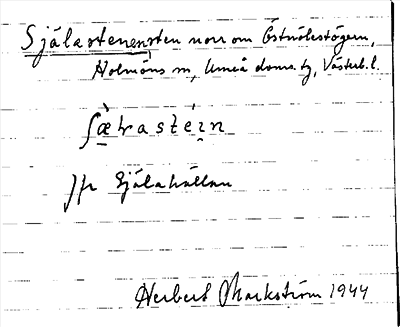 Själastenensten norr om Östnolestögern,
Holmöns sn, Umeå doms. tg, Västerb. l.
Jfr Själahällan
Herbert Markström 1944